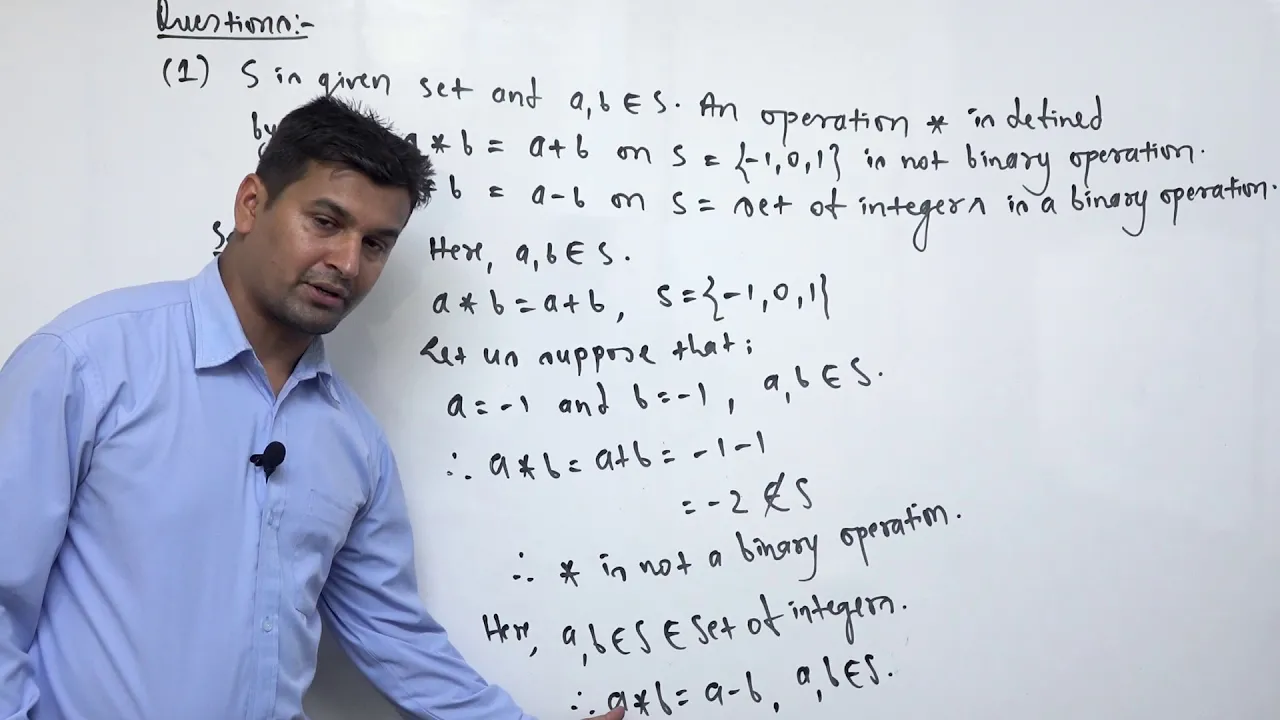 Questions:-
(1) S is given set and a, b ∈ S. An operation * is defined
by a * b = a+b on S = {-1, 0, 1} is not binary operation.
* b = a-b on S = set of integers is a binary operation.
Here, a, b ∈ S.
a * b = a+b, S = {-1, 0, 1}
Let us suppose that;
a = -1 and b = -1, a, b ∈ S.
∴ a * b = a+b = -1-1
= -2 ∉ S
∴ * is not a binary operation.
Here, a, b ∈ S ∈ Set of integers.
∴ a * b = a-b, a, b ∈ S.